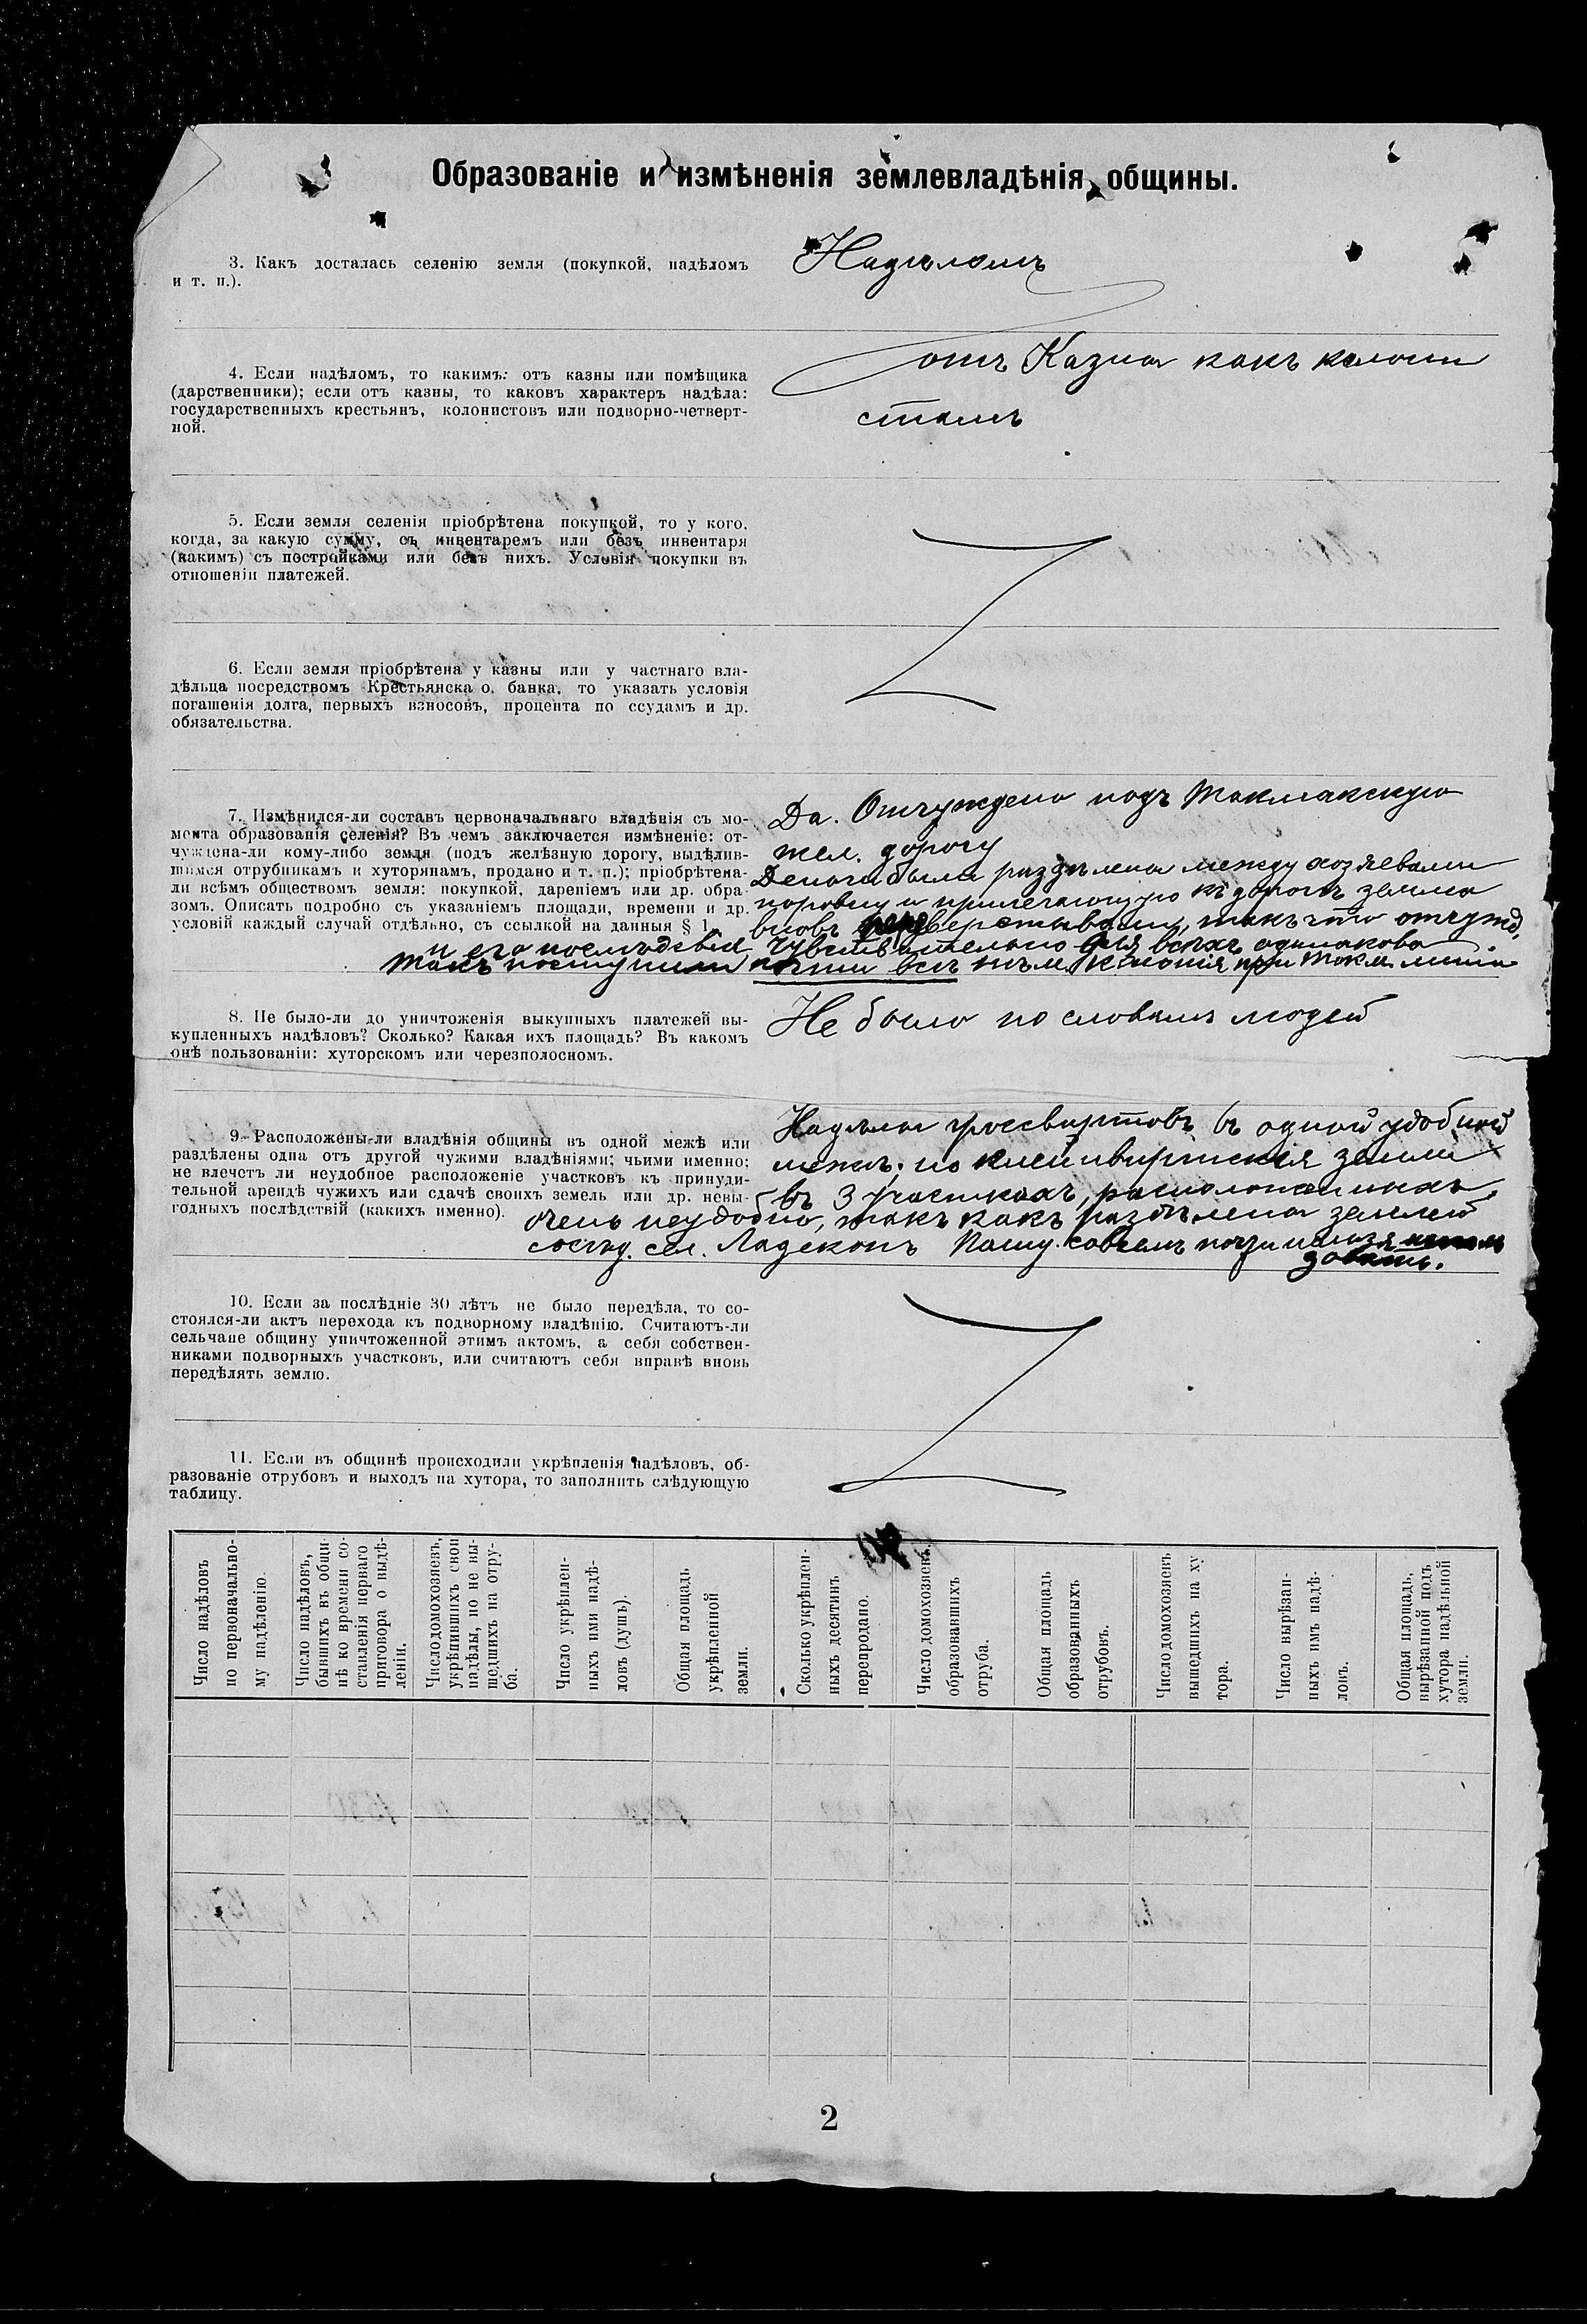 Образованіе и измѣненія землевладѣнія общины.
3. Какъ досталась селенію земля (покупкой, надѣломъ
и т. п.).
Надѣломъ
4. Если надѣломъ, то какимъ: отъ казны или помѣщика
(дарственники); если отъ казны, то каковъ характеръ надѣла:
государственныхъ крестьянъ, колонистовъ или подворно-четверт-
ной.
отъ Казны какъ колони
стамъ
5. Если земля селенія пріобрѣтена покупкой, то у кого,
когда, за какую сумму, съ инвентаремъ или безъ инвентаря
(какимъ) съ постройками или безъ нихъ. Условія покупки въ
отношеніи платежей.
6. Если земля пріобрѣтена у казны или у частнаго вла-
дѣльца посредствомъ Крестьянска о. банка, то указать условія
погашенія долга, первыхъ взносовъ, процента по ссудамъ и др.
обязательства.
7. Измѣнился-ли составъ первоначальнаго владѣнія съ мо-
мента образованія селенія? Въ чемъ заключается измѣненіе: от-
чуждена-ли кому-либо земля (подъ желѣзную дорогу, выдѣлив-
шимся отрубникамъ и хуторянамъ, продано и т. п.); пріобрѣтена-
ли всѣмъ обществомъ земля: покупкой, дареніемъ или др. обра-
зомъ. Описать подробно съ указаніемъ площади, времени и др.
условій каждый случай отдѣльно, съ ссылкой на данныя § 1.
Да. Отчуждено подъ Токмакскую
жел. дорогу
Деньги были раздѣлены между хозяевами
поровну и прилегающую къ дорогѣ землю
вновь переверстывали, такъ что отчужд.
и его послѣдствія чувствительно для всѣхъ одинаково.
Такъ поступили почти всѣ нѣм. колоніи при Токм. линіи
8. Не было-ли до уничтоженія выкупныхъ платежей вы-
купленныхъ надѣловъ? Сколько? Какая ихъ площадь? Въ какомъ
онѣ пользованіи: хуторскомъ или черезполосномъ.
Не было по словамъ людей
9. Расположены-ли владѣнія общины въ одной межѣ или
раздѣлены одна отъ другой чужими владѣніями; чьими именно;
не влечетъ ли неудобное расположеніе участковъ къ принуди-
тельной арендѣ чужихъ или сдачѣ своихъ земель или др. невы-
годныхъ послѣдствій (какихъ именно).
Надѣлы гросвиртовъ въ одной удобной
межѣ; но клейнвиртскія земли
въ 3 участкахъ, расположенныхъ
очень неудобно, такъ какъ раздѣлены землей
сосѣд. сел. Ладекопъ совсѣмъ почти нельзя
10. Если за послѣдніе 30 лѣтъ не было передѣла, то со-
стоялся-ли актъ перехода къ подворному владѣнію. Считаютъ-ли
сельчане общину уничтоженной этимъ актомъ, а себя собствен-
никами подворныхъ участковъ, или считаютъ себя вправѣ вновь
передѣлять землю.
11. Если въ общинѣ происходили укрѣпленія надѣловъ, об-
разованіе отрубовъ и выходъ на хутора, то заполнить слѣдующую
таблицу.
Число надѣловъ
по первоначально-
му надѣленію.
Число надѣловъ,
бывшихъ въ общи-
нѣ ко времени со-
ставленія перваго
приговора о выдѣ-
леніи.
Число домохозяевъ,
укрѣпившихъ свои
надѣлы, но не вы-
шедшихъ на отру-
ба.
Число укрѣплен-
ныхъ ими надѣ-
ловъ (душъ).
Общая площадь
укрѣпленной
земли.
Сколько укрѣплен-
ныхъ десятинъ
перепродано.
Число домохозяевъ,
образовавшихъ
отруба.
Общая площадь
образованныхъ
отрубовъ.
Число домохозяевъ
вышедшихъ на ху
тора.
Число вырѣзан-
ныхъ имъ надѣ-
ловъ.
Общая площадь,
вырѣзанной подъ
хутора надѣльной
земли.
2